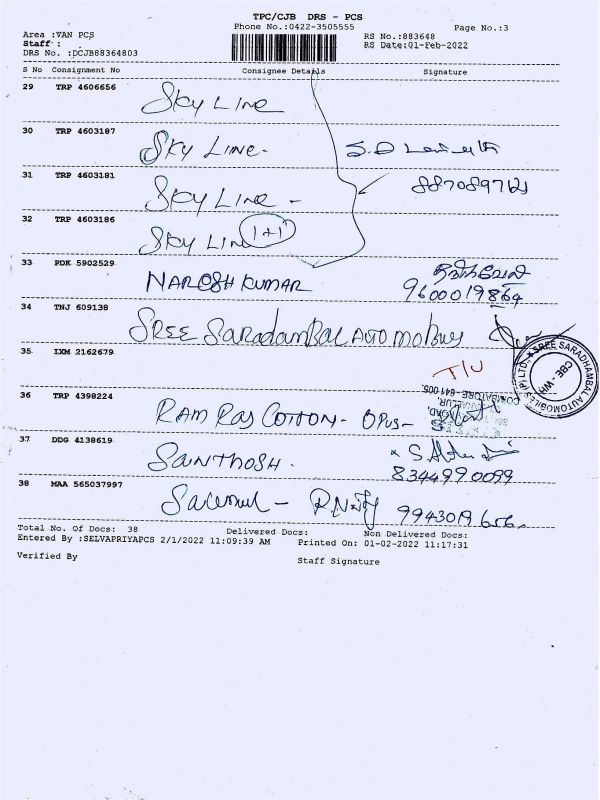 TPC/CJB DRS - PCS
Phone No.:0422-3505555
Page No.:3
Area :VAN PCS
Staff :
DRS No. :DCJB88364803
RS No.:883648
RS Date:01-Feb-2022
S No Consignment No Consignee Details Signature
29 TRP 4606656 Sky Line
30 TRP 4603187 Sky Line-
31 TRP 4603181 Sky Line - 
32 TRP 4603186 Sky Line 1+1
33 PDK 5902529 NARESH KUMAR
9600019864
34 TNJ 609138 SREE Saradambal Automobiles
SREE SARADHAMBAL AUTOMOBILES (P) LTD.,
CBE - WH
35 IXM 2162679 T/U
COIMBATORE - 641 005.
36 TRP 4398224 RAM RAJ COTTON - Opus -
37 DDG 4138619 SANTHOSH.
8344990099
38 MAA 565037997
9943019656
Total No. Of Docs: 38 Delivered Docs: Non Delivered Docs:
Entered By :SELVAPRIYAPCS 2/1/2022 11:09:39 AM Printed On: 01-02-2022 11:17:31
Verified By Staff Signature